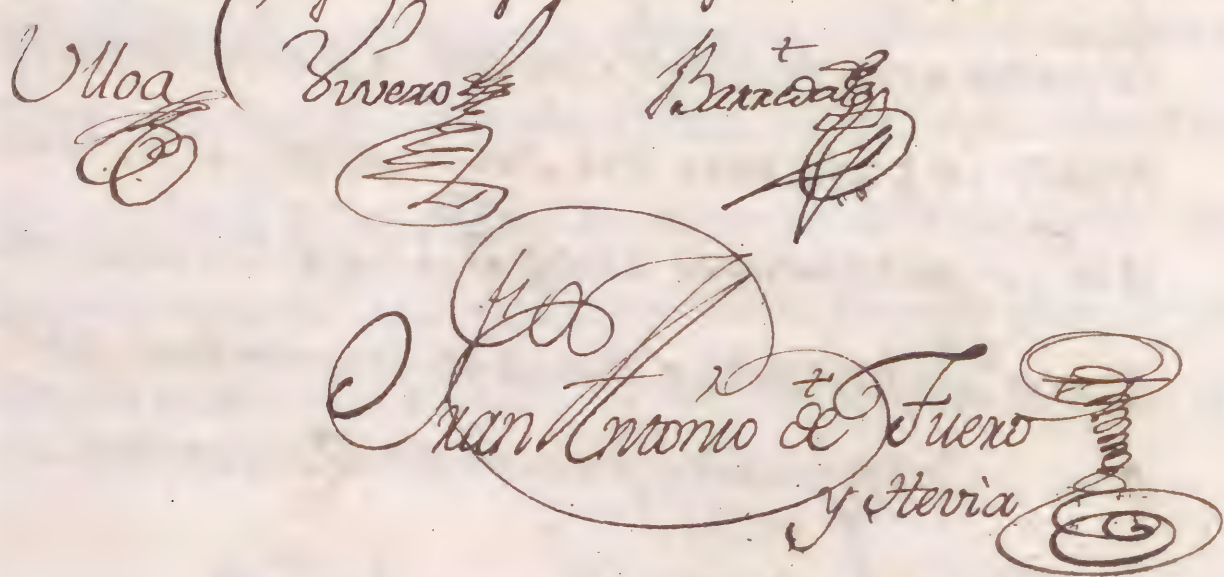 Ulloa Vivero Barreda
Fran Antonio de Fuero
y Hevia